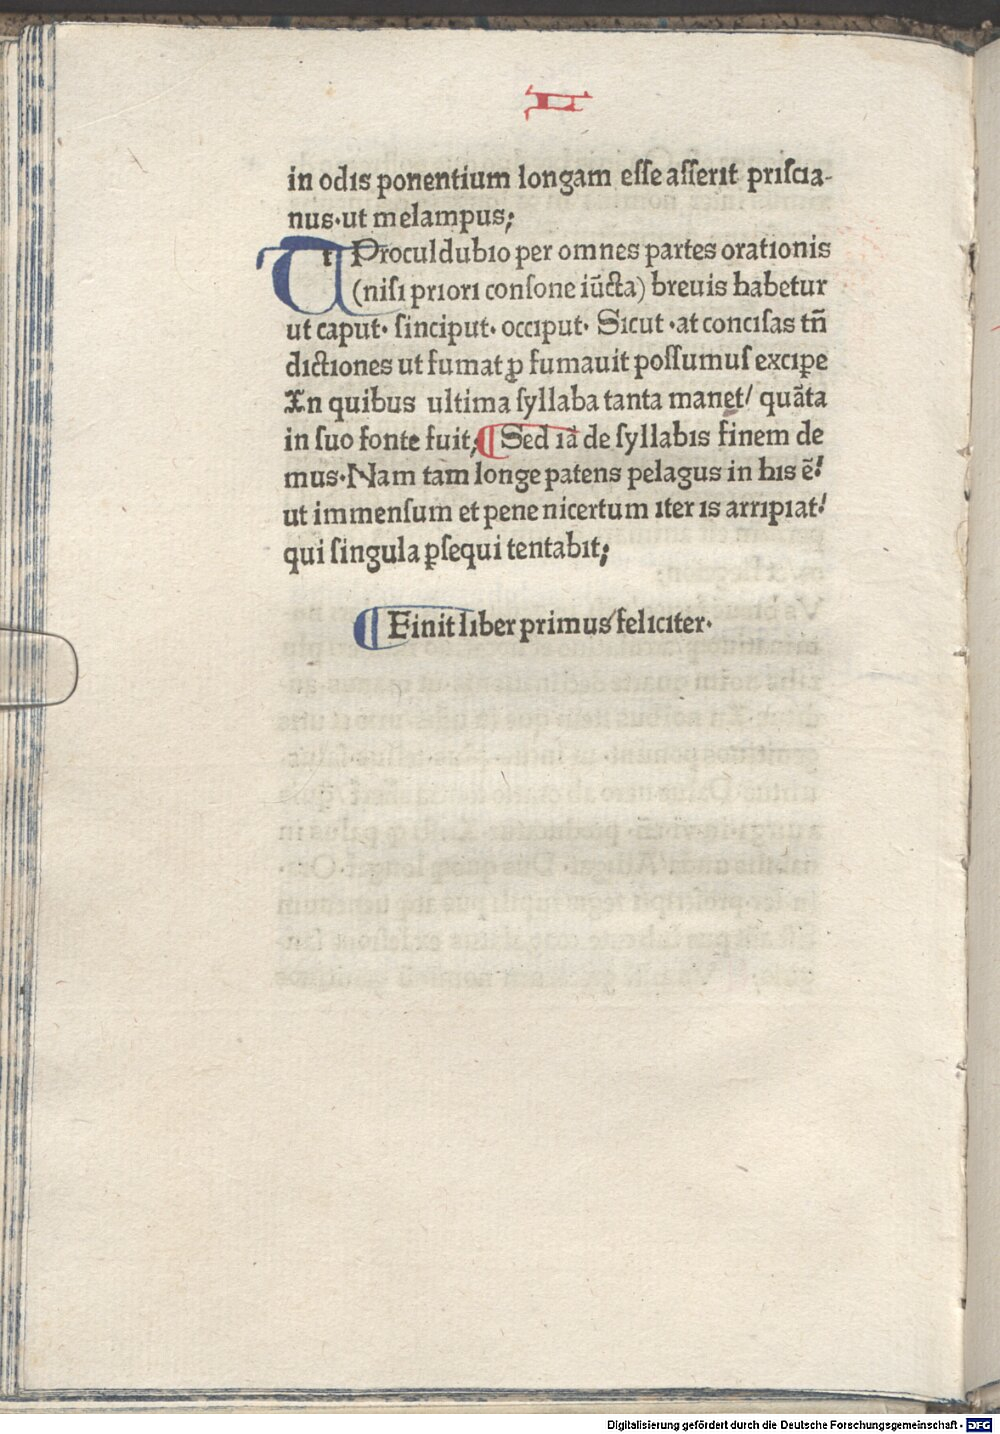 in odis ponentium longam eſſe aſſerit priſcia-
nus·ut melampus;
UT Procul dubio per omnes partes orationis
(niſi priori conſone iūcta) breuis habetur
ut caput· ſinciput· occiput· Sicut ·at conciſas tñ
dictiones ut fumat ꝓ fumauit poſſumuſ excip̱e
In quibus ultima ſyllaba tanta manet/ quāta
in ſuo fonte fuit; ¶ Sed iā de ſyllabis finem de
mus·Nam tam longe patens pelagus in his ē!
ut immenſum et pene nicertum iter is arripiat!
qui ſingula ꝑſequi tentabit;
¶ Finit liber primus feliciter·
Digitalisierung gefördert durch die Deutsche Forschungsgemeinschaft - DFG